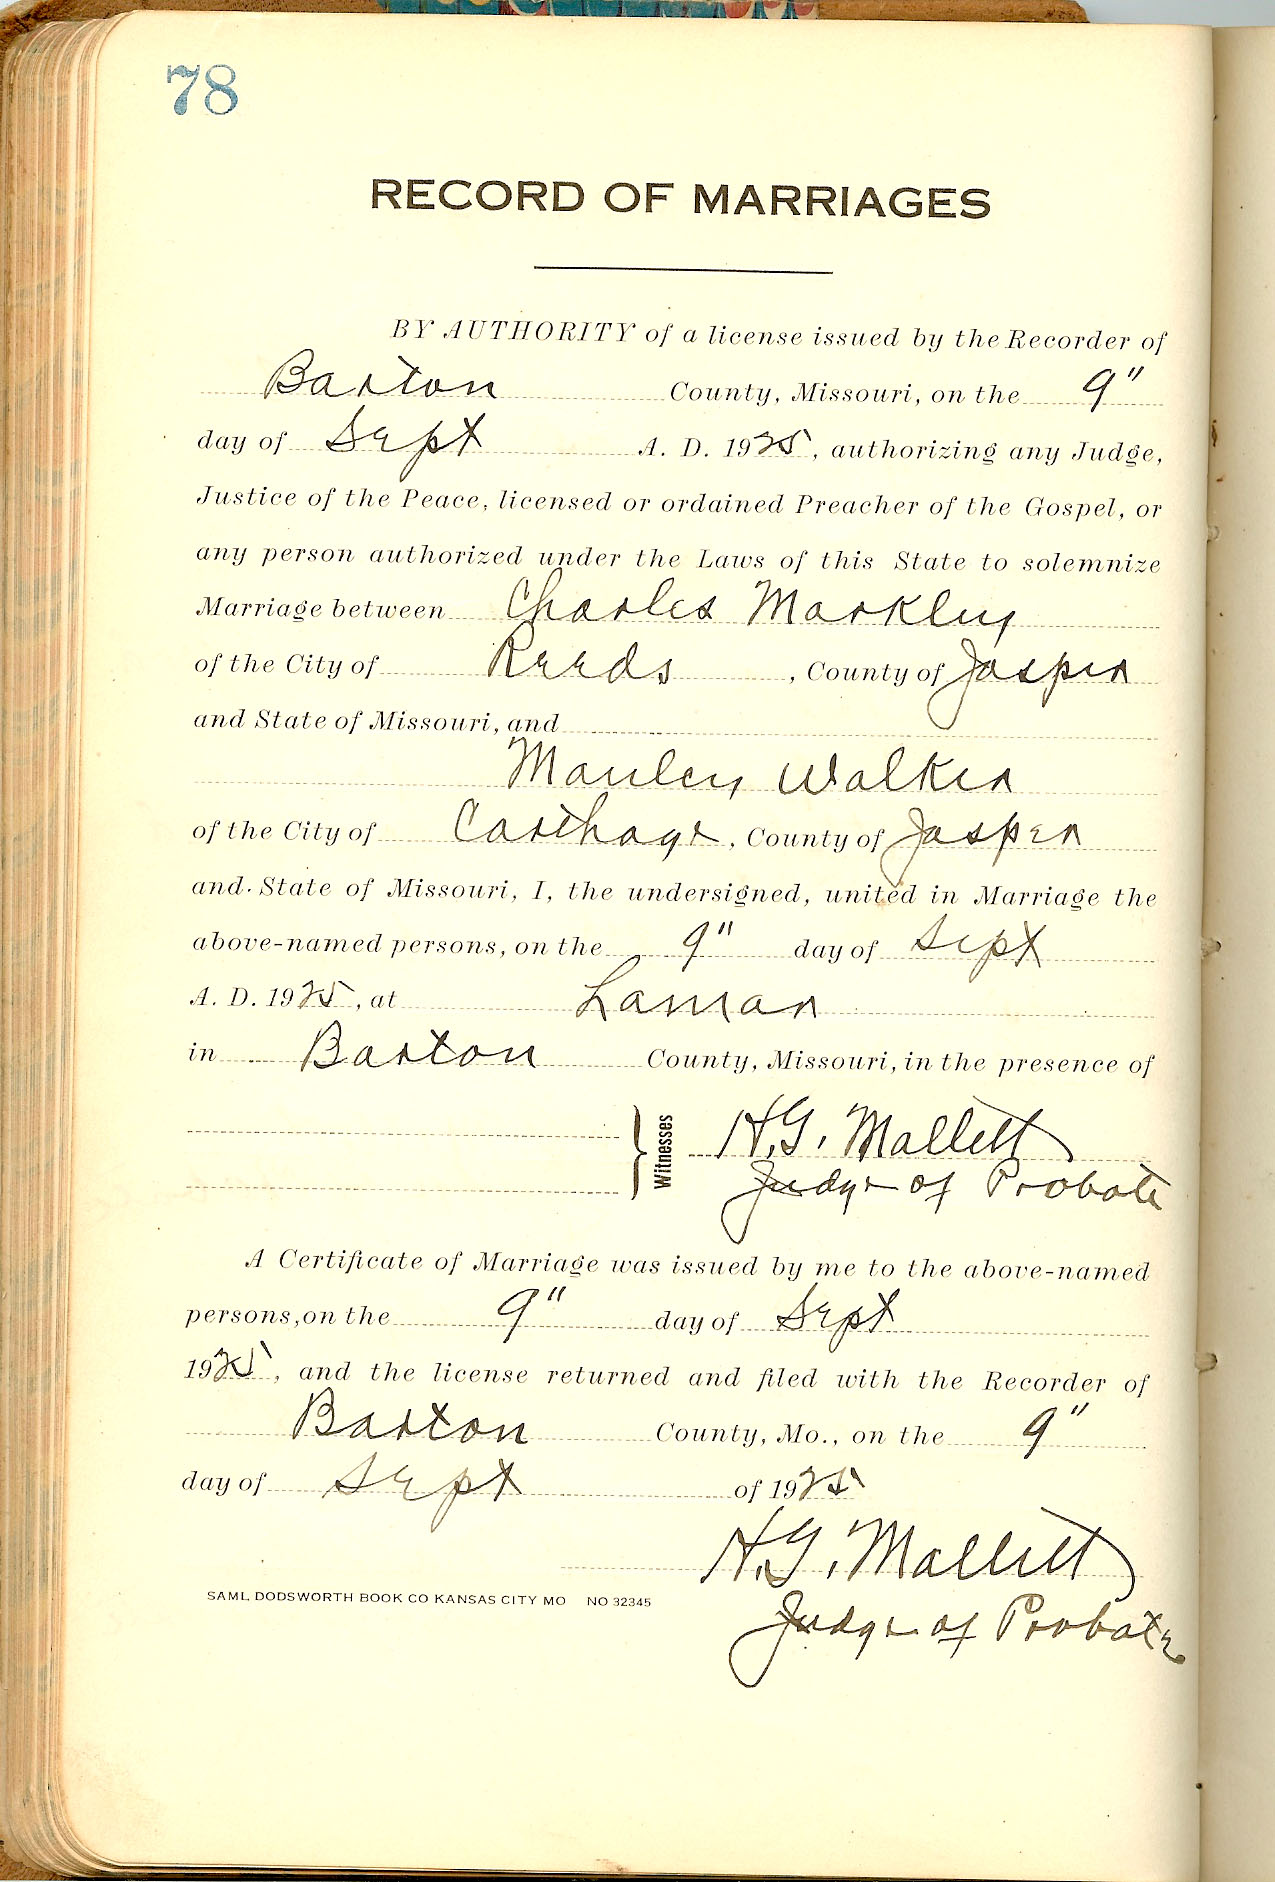 78
RECORD OF MARRIAGES
BY AUTHORITY of a license issued by the Recorder of
Barton County, Missouri, on the 9"
day of Sept A. D. 1925, authorizing any Judge,
Justice of the Peace, licensed or ordained Preacher of the Gospel, or
any person authorized under the Laws of this State to solemnize
Marriage between Charles Markley
of the City of Reeds, County of Jasper
and State of Missouri, and
Manley Walker
of the City of Carthage, County of Jasper
and State of Missouri, I, the undersigned, united in Marriage the
above-named persons, on the 9" day of Sept
A. D. 1925, at Lamar
in Barton County, Missouri, in the presence of
} Witnesses H.G. Mallett
Judge of Probate
A Certificate of Marriage was issued by me to the above-named
persons, on the 9" day of Sept
1925, and the license returned and filed with the Recorder of
Barton County, Mo., on the 9"
day of Sept of 1925
H.G. Mallett
SAML DODSWORTH BOOK CO KANSAS CITY MO NO 32345
Judge of Probate